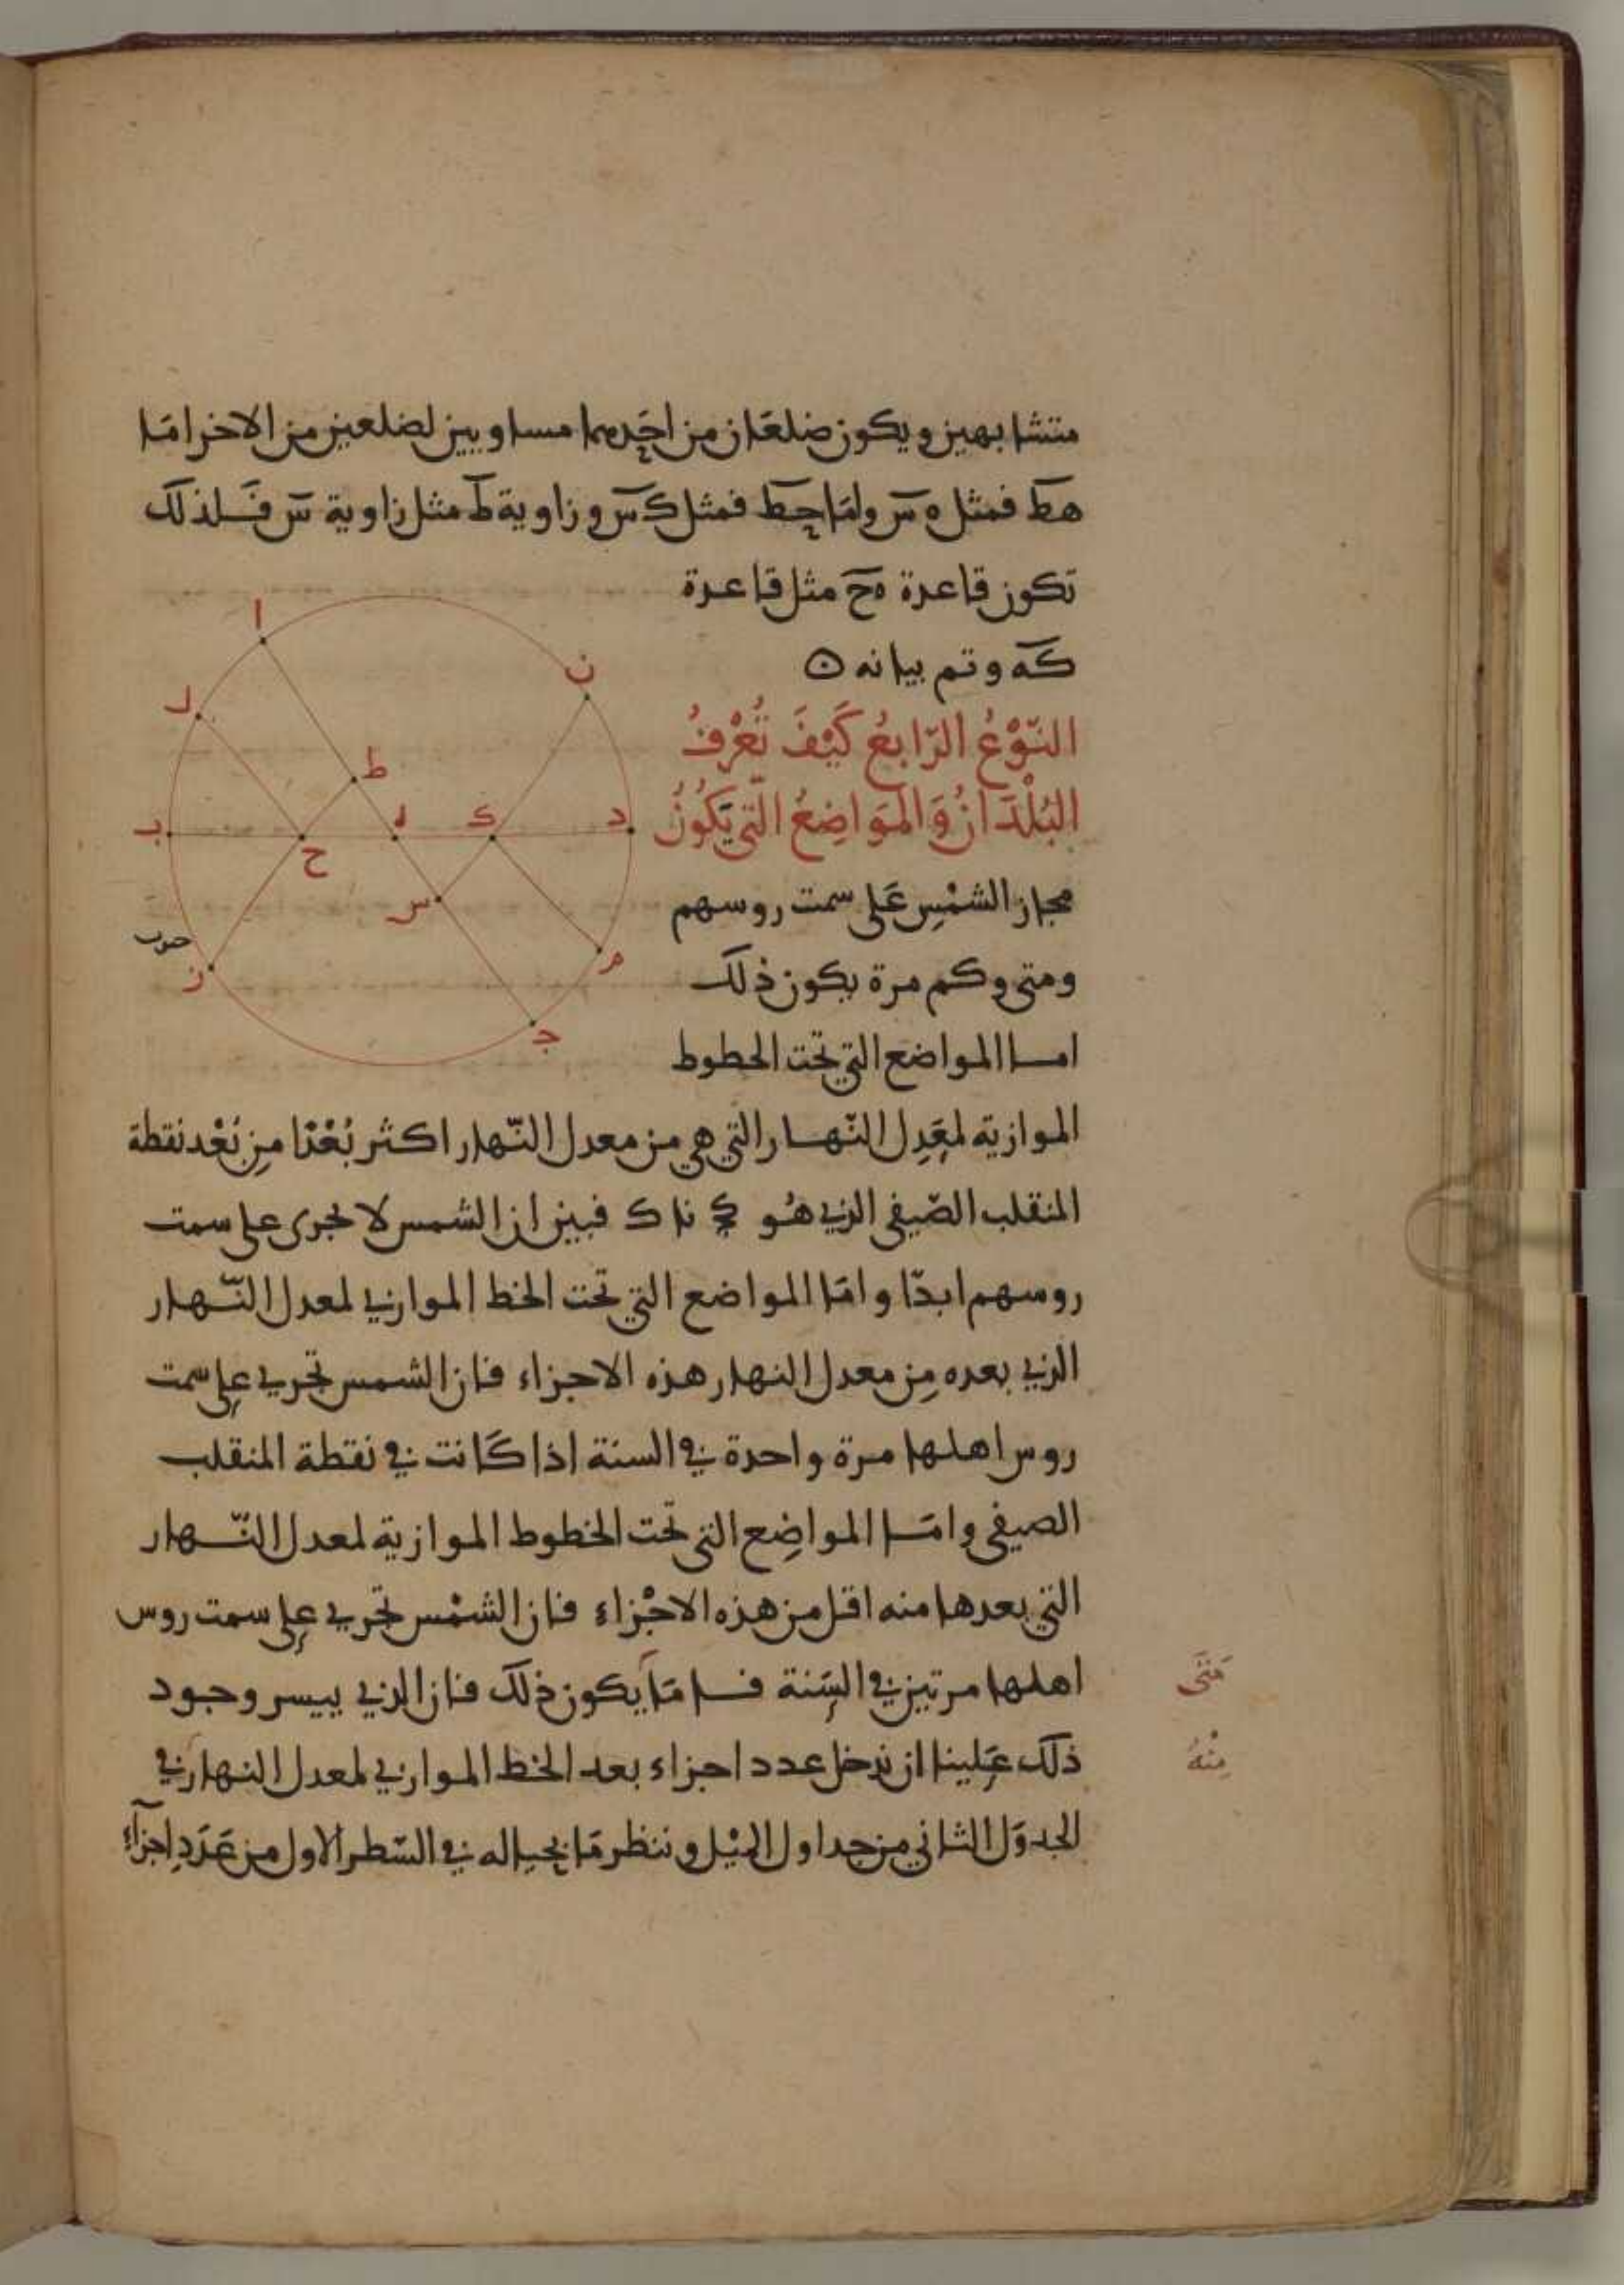 متشابهين ويكون ضلعان من احدهما مساويين لضلعين من الاخر امَا
هطَ فمثل ه سَ وامَا حطَ فمثل ك سَ وزاوية طَ مثل زاوية سَ فَلذلك
تكون قاعدة هَح مثل قاعدة
كَه وتم بيانه
ا
ن
ل
ط
ب
ح
ه
ك
د
س
م
ز
ج
جنوب
النّوْعُ الرّابعُ كَيْفَ تُعْرَفُ
البُلْدَانُ وَالمَوَاضِعُ الّتي يَكُونُ
مجاز الشمْسِ عَلى سمت روسهم
ومتى وكم مرة يكون ذلك
امـا المواضع التي تحت الخطوط
الموازية لمعَدِل النّهـار التي هي من معدل النّهار اكثر بُعْدًا مِن بُعْد نقطة
المنقلب الصّيفي الذي هُو كج نا ك فبين ان الشمس لا تجرى على سمت
روسهم ابدًا وامَا المواضع التي تحت الخط الموازي لمعدل النّهار
الذي بعده مِن معدل النهار هذه الاجزاء فان الشمس تجري على سمت
روس اهلها مرة واحدة في السنة اذا كَانت في نقطة المنقلب
الصيفي وامَـا المواضِع التي تحت الخطوط الموازية لمعدل النّـهار
التي بعدها منه اقل من هذه الاجْزاء فان الشمْس تجري على سمت روس
اهلها مرتين في السَنة فـامَا يكون ذلك فان الذي ييسر وجود
مَتَى
ذلك عَلينا ان ندخل عدد اجزاء بعد الخط الموازي لمعدل النهار في
مِنْهُ
الجدوَل الثاني من جداول الميْل وننظر مَا بحياله في السّطر الاول من عَدَدِ اجزآءِ